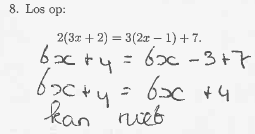 8. Los op:
2(3x + 2) = 3(2x − 1) + 7.
6x + 4 = 6x - 3 + 7
6x + 4 = 6x + 4
kan niet